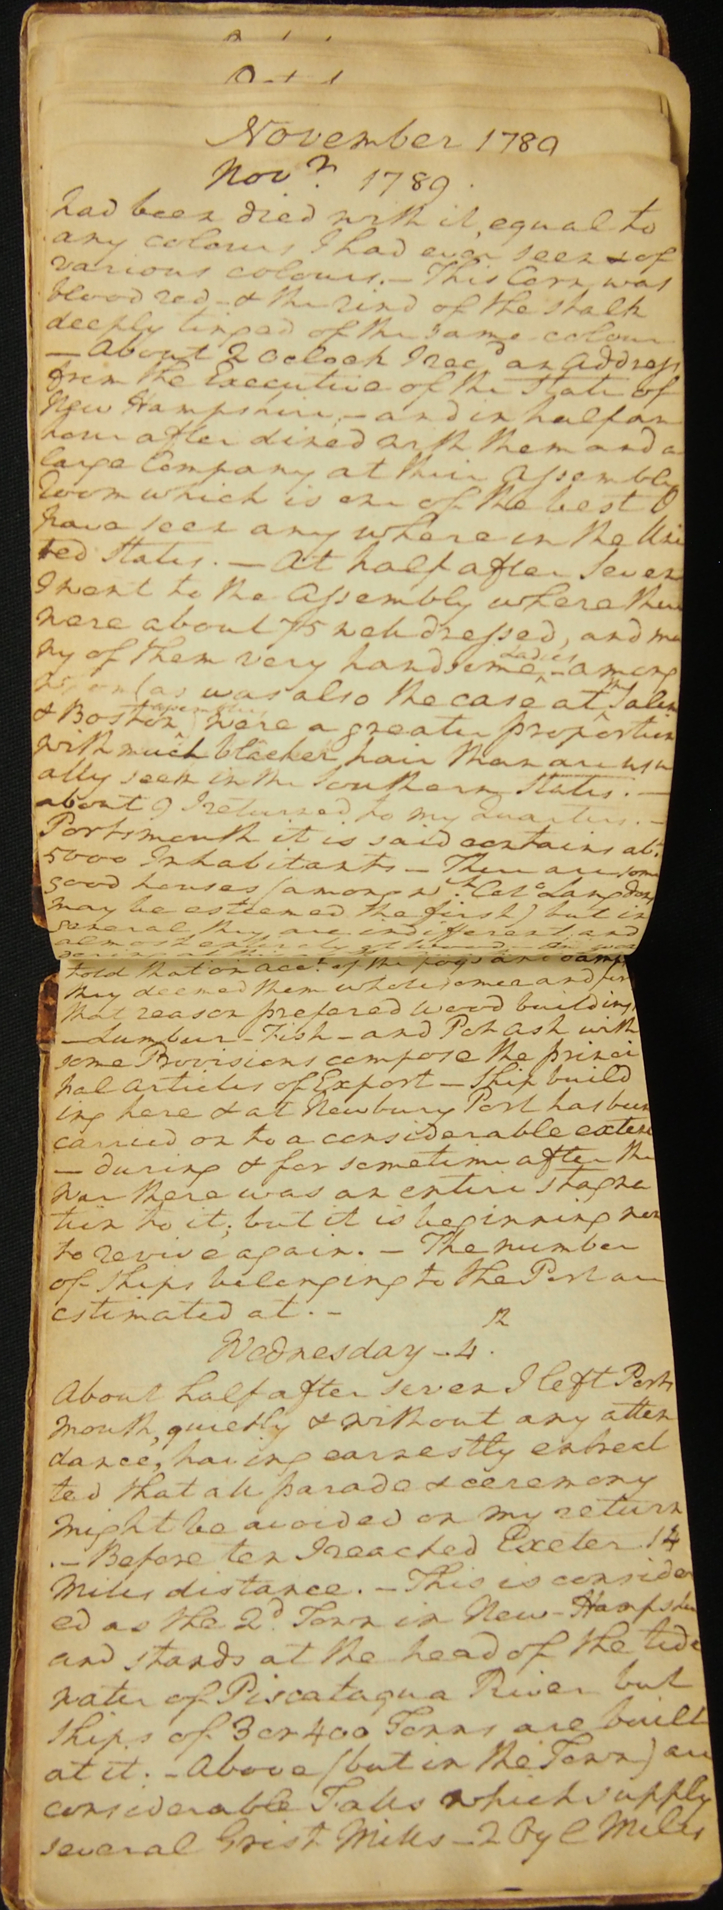 November 1789
Novr. 1789.
had been died with it, equal to
any colours I had ever seen & of
various colours. — This Corn was
blood red - & the rind of the stalk
deeply tinged of the same colour
— About 2 Oclock I recd. an Address
from the Executive of the State of
New Hampshire; — and in half an
hour after dined with them and a
large Company at their Assembly
Room which is one of the best I
have seen any where in the Uni
ted States. — At half after Seven
I went to the Assembly where there
were about 75 well dressed, and ma
ny of them very handsome Ladies - among
whom (as was also the case at the Salem
& Boston Assemblies) were a greater proportion
with much blacker hair than are usu
ally seen in the Southern States. —
about 9 I returned to my Quarters. —
Portsmouth it is said contains abt.
5000 Inhabitants — There are some
good houses (among wch. Colo. Langdon's
may be esteemed the first) but in
general they are indifferent; and
almost entirely of wood
told that on acct. of the fogs and damp
they deemed them wholesomer and for
that reason prefered wood buildings
— Lumber - Fish - and Pot ash with
some Provisions compose the princi
pal Articles of Export — Ship build
ing here & at Newbury Port has been
carried on to a considerable extent
— during & for sometime after the
War there was an entire stagna
tion to it; but it is beginning now
to revive again. — The number
of Ships belonging to the Port are
estimated at. —
Wednesday - 4th.
About half after seven I left Ports
mouth, quietly & without any atten
dance, having earnestly entreat
ted that all parade & ceremony
might be avoided on my return
. — Before ten I reached Exeter 14
Miles distance. — This is consider
ed as the 2d. Town in New-Hampshire
and stands at the head of the tide
water of Piscataqua River but
Ships of 3 or 400 Tonns are built
at it. — Above (but in the Town) are
considerable Falls which supply
several Grist Mills - 2 Oyl Mills